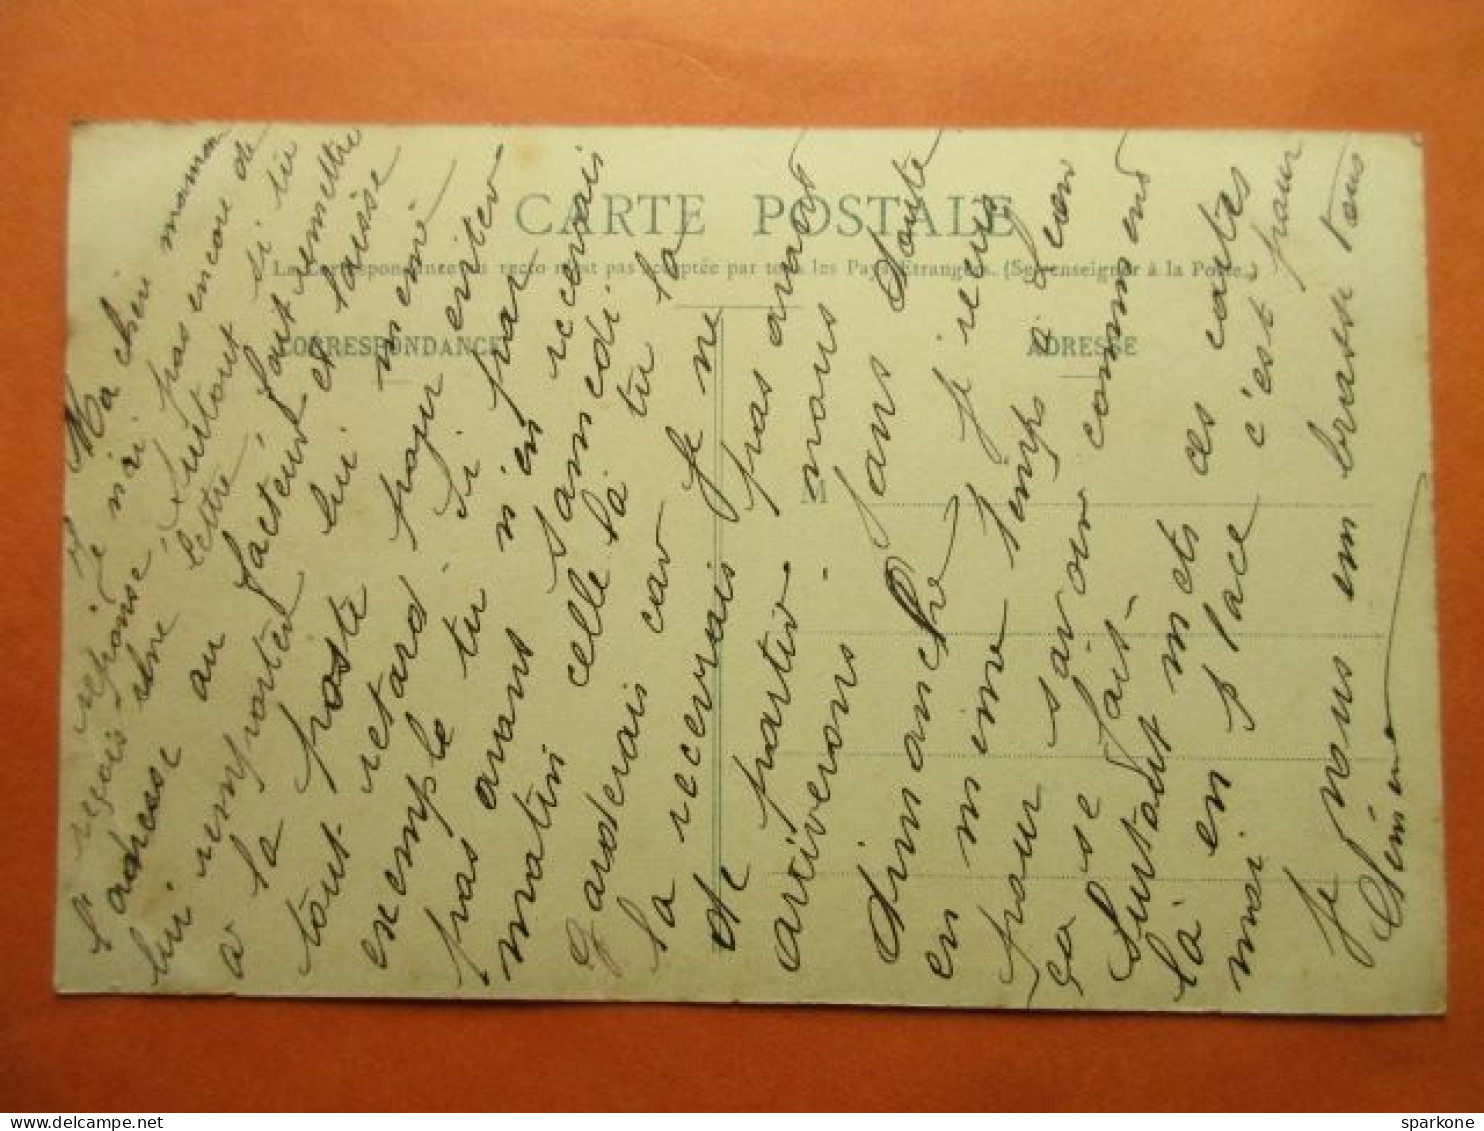 CARTE POSTALE
La Correspondance au recto n'est pas acceptée par tous les Pays Etrangers. (Se renseigner à la Poste.)
CORRESPONDANCE
ADRESSE
M
Ma chère maman
Je n'ai pas encore de
réponse, surtout si tu
reçois une lettre faut remettre
l'adresse au facteur et laisse
lui remporter lui même
a la poste pour eviter
tout retard. Si par
exemple tu n'en recevais
pas avant samedi la
matin celle là tu
garderais car je ne
la recevrais pas avant
de partir. nous
arriverons sans doute
dimanche Je
en même temps a Jean
pour savoir comment
ça se fait-
Surtout mets ces cartes
là en place c'est pour
moi
Je vous embrasse tous